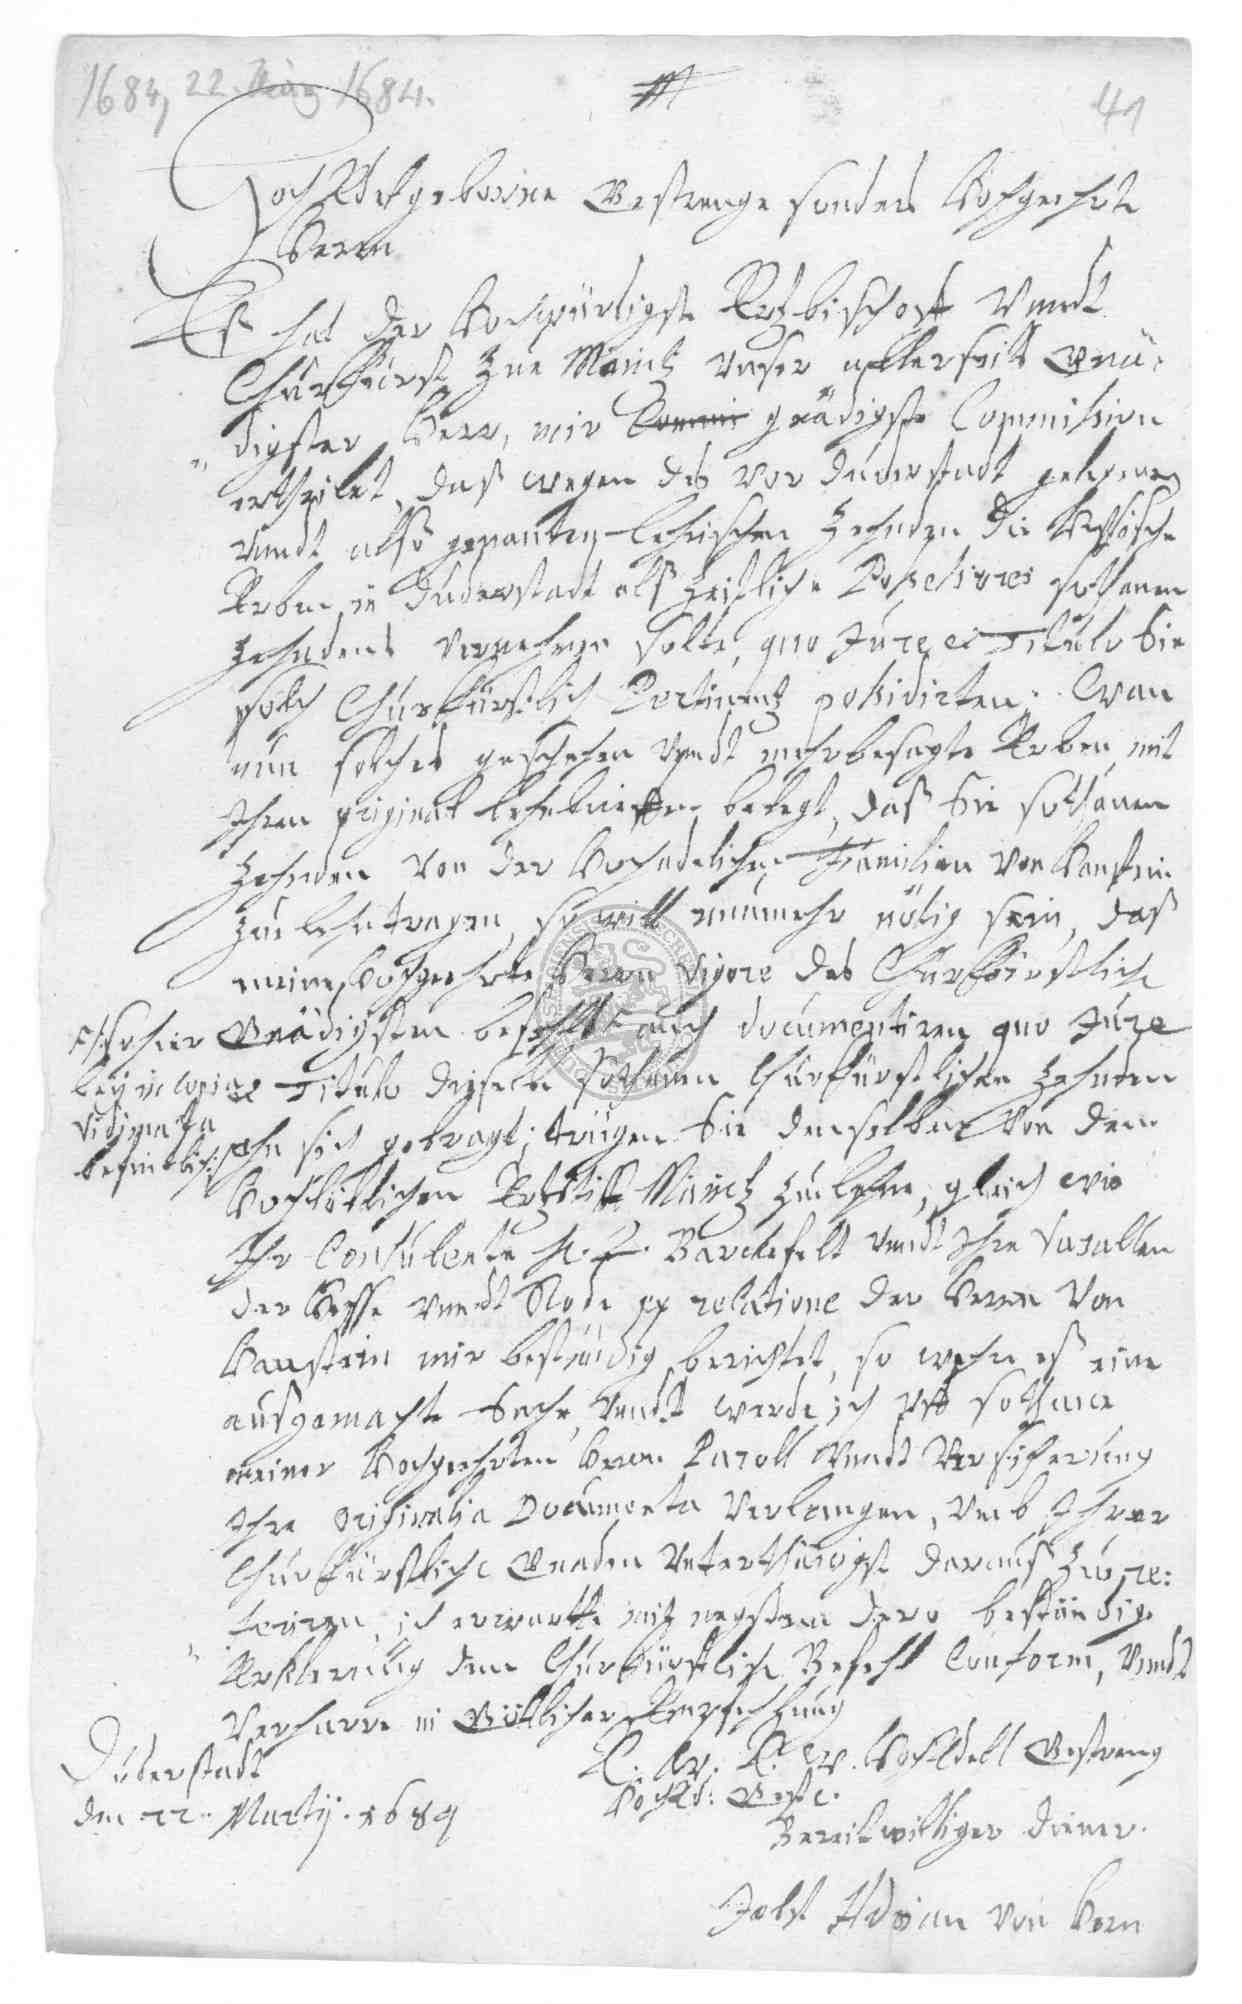 1684, 22. Aug 1684.
41
HochEdelgeborne Gestrenge sonders Hochgeehrte
Herrn
Eß hat der Hochwürdigste Ertzbischoff Vnndt
Churfürst Zue Maintz Unser allerseits Gnä-
digster Herr, mir Commis gnädigste Commission
ertheilet, daß wegen des vor Duderstadt gelegenen
Vnndt also genanten Zehnden die Hessische
Erben in Duderstadt als Possessores sothanen
Zehndens vernehmen solte, quo Jure et Titulo Sie
solch Churfürstlich Pertinentz possidirten. Wan
nun solches geschehen Vnndt mehrbesagte Erben mit
Ihren original lehnbrieffen belegt, daß Sie sothanen
Zehnden von der Hochadelichen Familien von Hanstein
zue lehn tragen, so will nunmehr nötig sein, daß
meine Hochgeehrte Herrn vigore des Churfürstlich
Gnädigsten befehls auch documentiren quo Jure
et Titulo dieselbe sothanen Churfürstlichen Zehnden
so hier
bey in copia
vidimata
befindlich
ahn sich gebragt; trügen Sie denselben von dem
Hochlöblichen Ertzstifft Maintz zue lehn, gleich wie
Ihr Consulente H. L. Barckefelt vnndt Ihre Vasallen
der Hesse vnndt Rode ex relatione der Herrn von
Hanstein mir beständig berichtet, so wehr eß eine
ausgemachte Sache, Vnndt werde ich vff sothane
meiner Hochgeehrten Herrn Paroll Vnndt Versicherung
Ihre originalia Documenta verlangen, umb Ihrer
Churfürstliche Gnaden Unterthänigst daraus zu re-
feriren, ich erwarte mit negstem dero beständige
Erklerung dem Churfürstlich Befehl Conform, Vnndt
Verharre in Götlicher Empfehlung
Duderstadt
den 22. Martij. 1684
E. W. E. W. HochEdell Gestreng
HochEd: Gest:
Bereitwilliger Diener.
Jobst Adrian von Horn